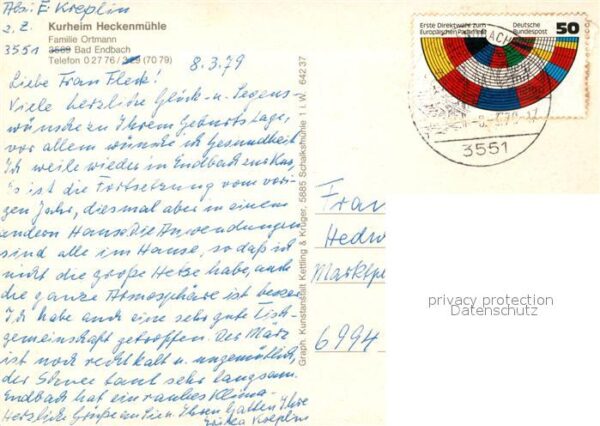 Abs. E. Kreplin
z. Z. Kurheim Heckenmühle
Familie Ortmann
3551 3569 Bad Endbach
Telefon 0 27 76 / 329 (70 79)
8.3.79
Liebe Frau Fleck!
Viele herzliche Glück- u. Segens-
wünsche zu Ihrem Geburtstage,
vor allem wünsche ich Gesundheit.
Ich weile wieder in Endbach zur Kur,
Es ist die Fortsetzung vom vori-
gen Jahr, diesmal aber in einem
andern Hause. Die Anwendungen
sind alle im Hause, so daß ich
nicht die große Hetze habe, auch
die ganze Atmosphäre ist besser
Ich habe auch eine sehr gute Tisch-
gemeinschaft getroffen. Der März
ist noch recht kalt u. ungemütlich,
der Schnee taut sehr langsam.
Endbach hat ein rauhes Klima.
Herzliche Grüße an Sie u. Ihren Gatten Ihre
Erika Kreplin
Graph. Kunstanstalt Kettling & Krüger, 5885 Schalksmühle 1 i. W. 642 37
Erste Direktwahl zum
Europäischen Parlament
Deutsche
Bundespost
50
3551
Frau
Hedw
Marktpl
6994
privacy protection
Datenschutz